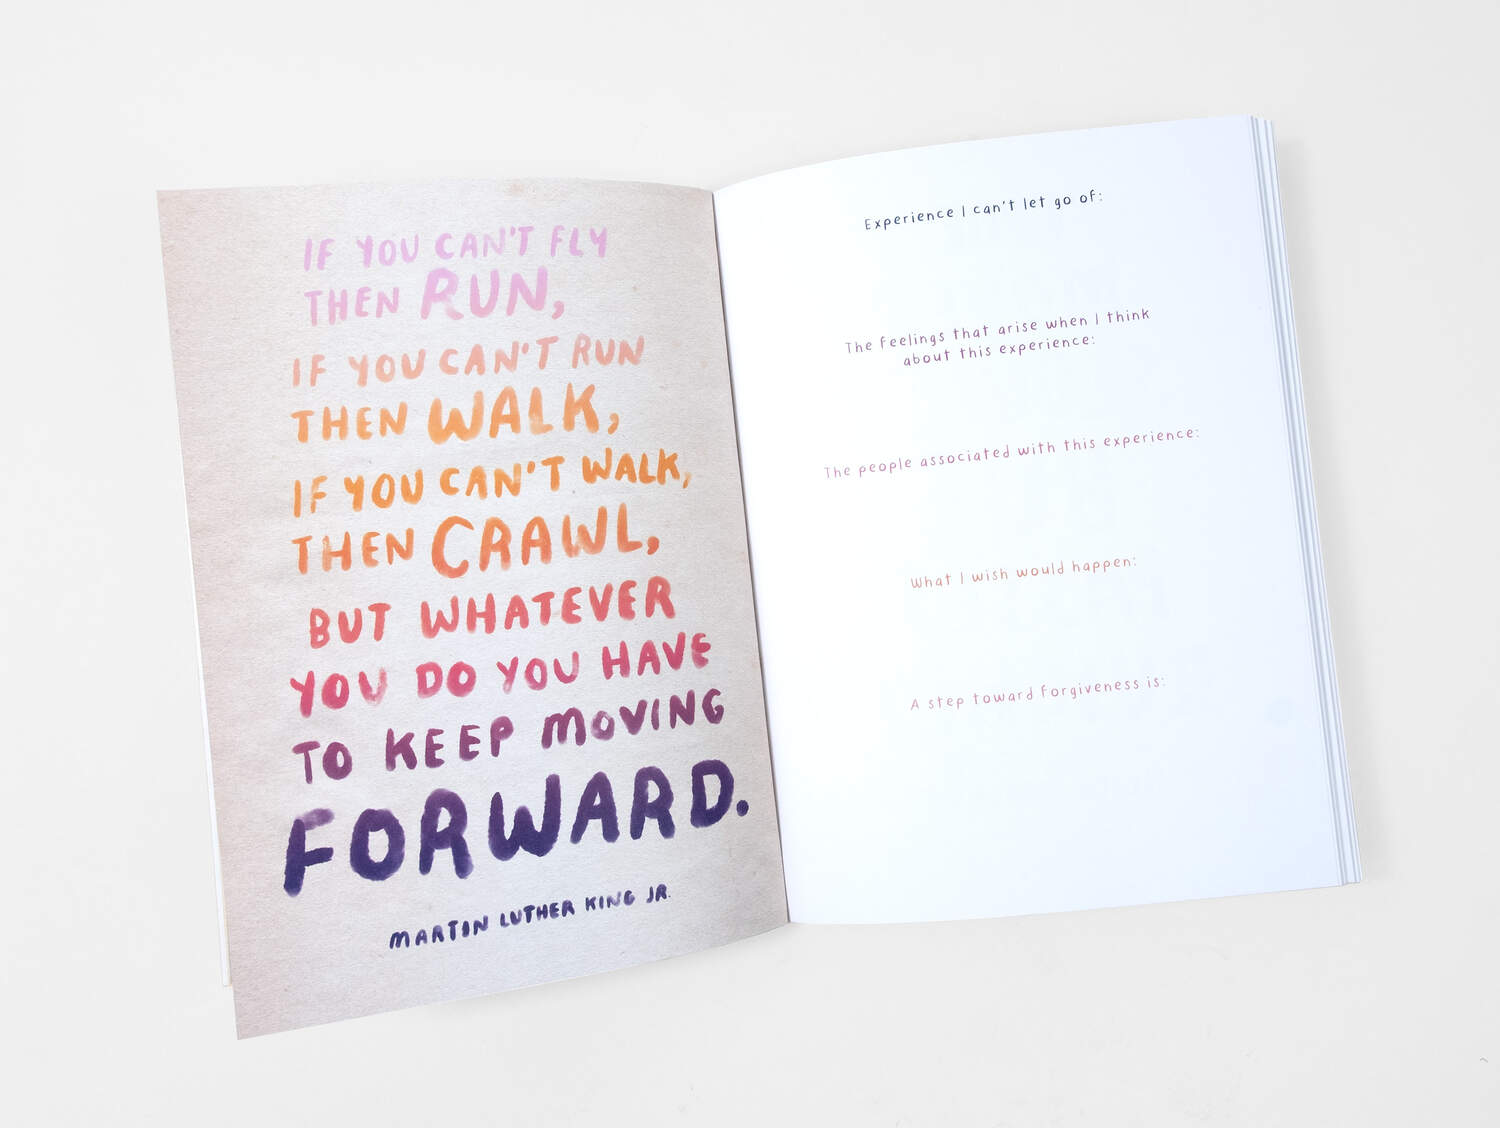 IF YOU CAN'T FLY
THEN RUN,
IF YOU CAN'T RUN
THEN WALK,
IF YOU CAN'T WALK,
THEN CRAWL,
BUT WHATEVER
YOU DO YOU HAVE
TO KEEP MOVING
FORWARD.
MARTIN LUTHER KING JR.
Experience I can't let go of:
The feelings that arise when I think
about this experience:
The people associated with this experience:
What I wish would happen:
A step toward forgiveness is: